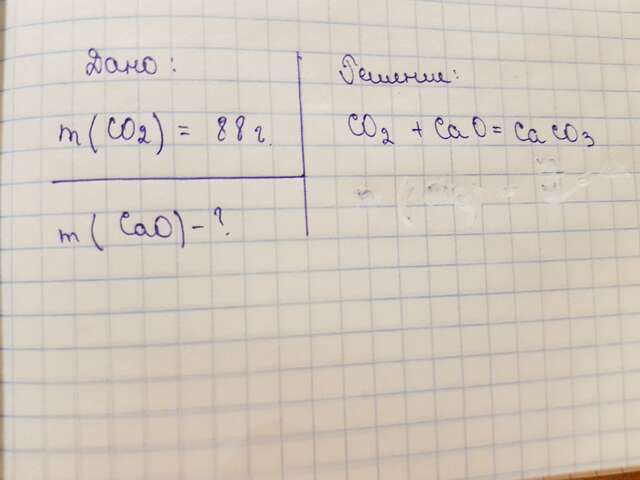 Дано:
m(CO2) = 88г.
m(CaO) - ?
Решение:
CO2 + CaO = CaCO3